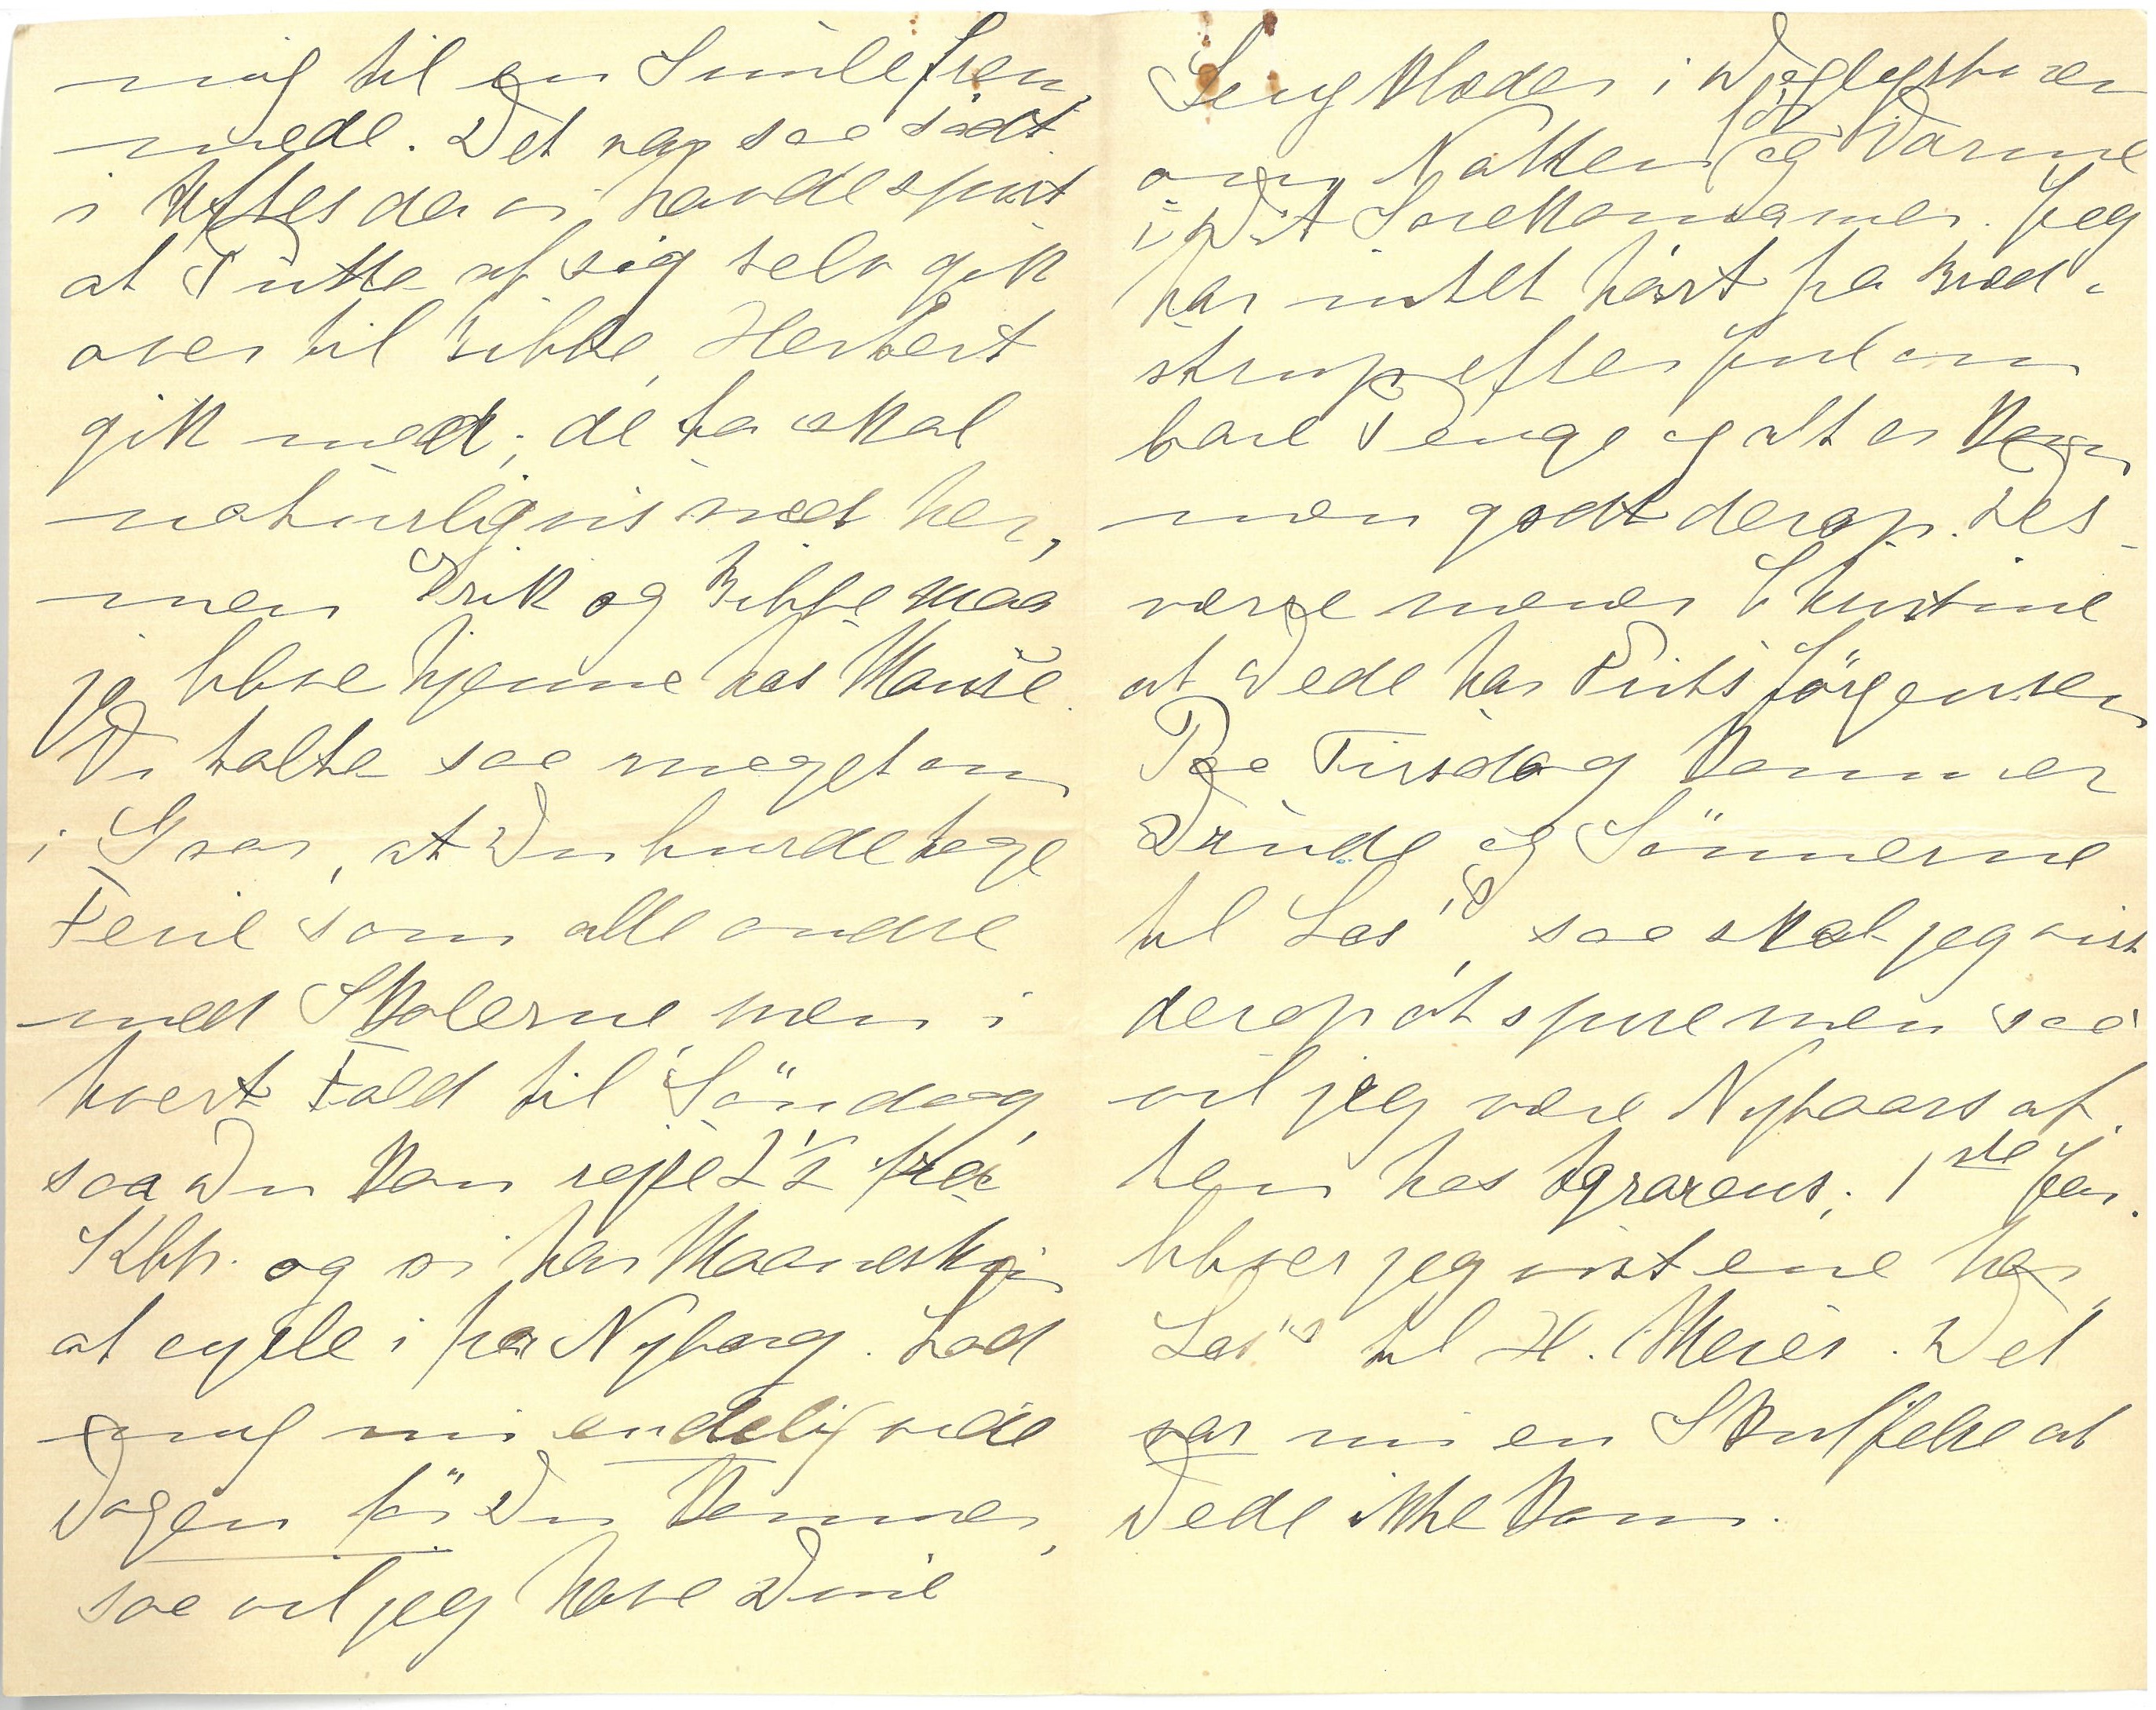 mig til en Smule frem
mede. Det var saa sødt
i Aftes da vi havde spist
at Putte af sig selv gik
over til Bibbe, Herbert
gik med; de to skal
naturligvis med her,
men Erik og Bibbe maa
jo blive hjemme hos Manse.
Vi talte saa meget om
i Gaar, at Du burde tage
Ferie som alle andre
med Skolerne men i
hvert Fald til Söndag,
saa Du kan rejse 2 1/2 fra
Kbh. og vi har Maaneskin
at cykle i fra Nyborg. Lad
mig nu endelig vide
Dagen för Du kommer,
saa vil jeg have Dine
Sengklæder i Dagligstuen
om Natten for og Varme
i Dit Sovekammer. Jeg
har intet hört fra Bred-
strup efter Jul om
bare Penge og alt er kom
men godt derop. Des-
værre mener Christine
at Dede har Frits Jörgensen
Paa Tirsdag kommer
Drude og Sönnerne
til Las's, saa skal jeg vist
derop at spise men saa
vil jeg være Nytaarsaf.
ten hos Agrarens; 1ste Jan.
bliver jeg vist ene her,
Las's til H. Meier. Det
var nu en Skuffelse at
Dede ikke kom.